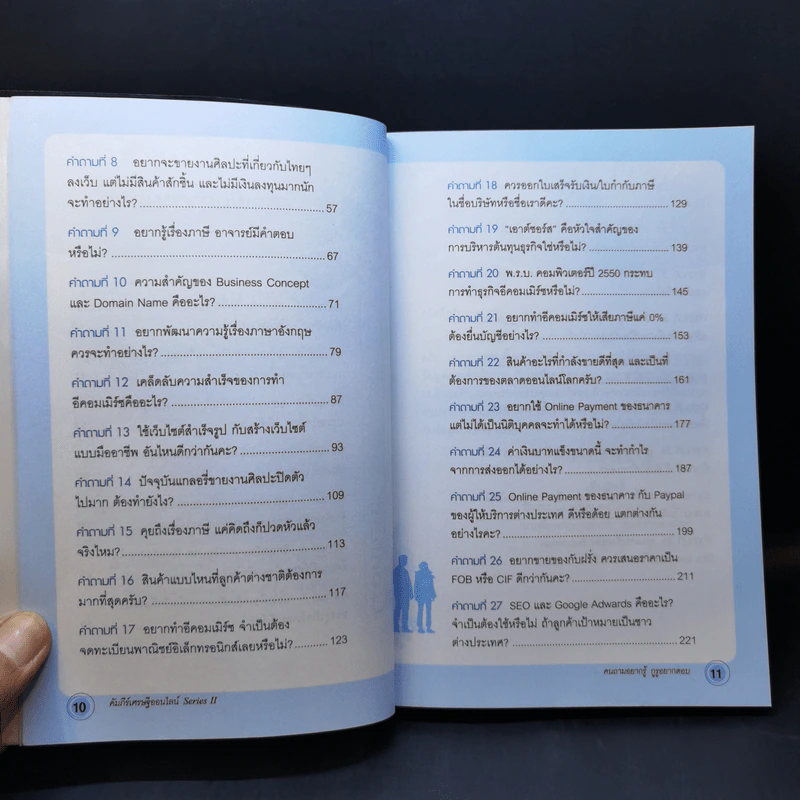 คำถามที่ 8 อยากจะขายงานศิลปะที่เกี่ยวกับไทยๆ
ลงเว็บ แต่ไม่มีสินค้าสักชิ้น และไม่มีเงินลงทุนมากนัก
จะทำอย่างไร? 57
คำถามที่ 9 อยากรู้เรื่องภาษี อาจารย์มีคำตอบ
หรือไม่? 67
คำถามที่ 10 ความสำคัญของ Business Concept
และ Domain Name คืออะไร? 71
คำถามที่ 11 อยากพัฒนาความรู้เรื่องภาษาอังกฤษ
ควรจะทำอย่างไร? 79
คำถามที่ 12 เคล็ดลับความสำเร็จของการทำ
อีคอมเมิร์ซคืออะไร? 87
คำถามที่ 13 ใช้เว็บไซต์สำเร็จรูป กับสร้างเว็บไซต์
แบบมืออาชีพ อันไหนดีกว่ากันคะ? 93
คำถามที่ 14 ปัจจุบันแกลอรี่ขายงานศิลปะปิดตัว
ไปมาก ต้องทำยังไง? 109
คำถามที่ 15 คุยถึงเรื่องภาษี แค่คิดถึงก็ปวดหัวแล้ว
จริงไหม? 113
คำถามที่ 16 สินค้าแบบไหนที่ลูกค้าต่างชาติต้องการ
มากที่สุดครับ? 117
คำถามที่ 17 อยากทำอีคอมเมิร์ซ จำเป็นต้อง
จดทะเบียนพาณิชย์อิเล็กทรอนิกส์เลยหรือไม่? 123
10 คัมภีร์เศรษฐีออนไลน์ Series II
คำถามที่ 18 ควรออกใบเสร็จรับเงิน/ใบกำกับภาษี
ในชื่อบริษัทหรือชื่อเราดีคะ? 129
คำถามที่ 19 "เอาต์ซอร์ส" คือหัวใจสำคัญของ
การบริหารต้นทุนธุรกิจใช่หรือไม่? 139
คำถามที่ 20 พ.ร.บ. คอมพิวเตอร์ปี 2550 กระทบ
การทำธุรกิจอีคอมเมิร์ซหรือไม่? 145
คำถามที่ 21 อยากทำอีคอมเมิร์ซให้เสียภาษีแค่ 0%
ต้องยื่นบัญชีอย่างไร? 153
คำถามที่ 22 สินค้าอะไรที่กำลังขายดีที่สุด และเป็นที่
ต้องการของตลาดออนไลน์โลกครับ? 161
คำถามที่ 23 อยากใช้ Online Payment ของธนาคาร
แต่ไม่ได้เป็นนิติบุคคลจะทำได้หรือไม่? 177
คำถามที่ 24 ค่าเงินบาทแข็งขนาดนี้ จะทำกำไร
จากการส่งออกได้อย่างไร? 187
คำถามที่ 25 Online Payment ของธนาคาร กับ Paypal
ของผู้ให้บริการต่างประเทศ ดีหรือด้อย แตกต่างกัน
อย่างไรคะ? 199
คำถามที่ 26 อยากขายของกับฝรั่ง ควรเสนอราคาเป็น
FOB หรือ CIF ดีกว่ากันคะ? 211
คำถามที่ 27 SEO และ Google Adwards คืออะไร?
จำเป็นต้องใช้หรือไม่ ถ้าลูกค้าเป้าหมายเป็นชาว
ต่างประเทศ? 221
คนถามอยากรู้ กูรูอยากตอบ 11